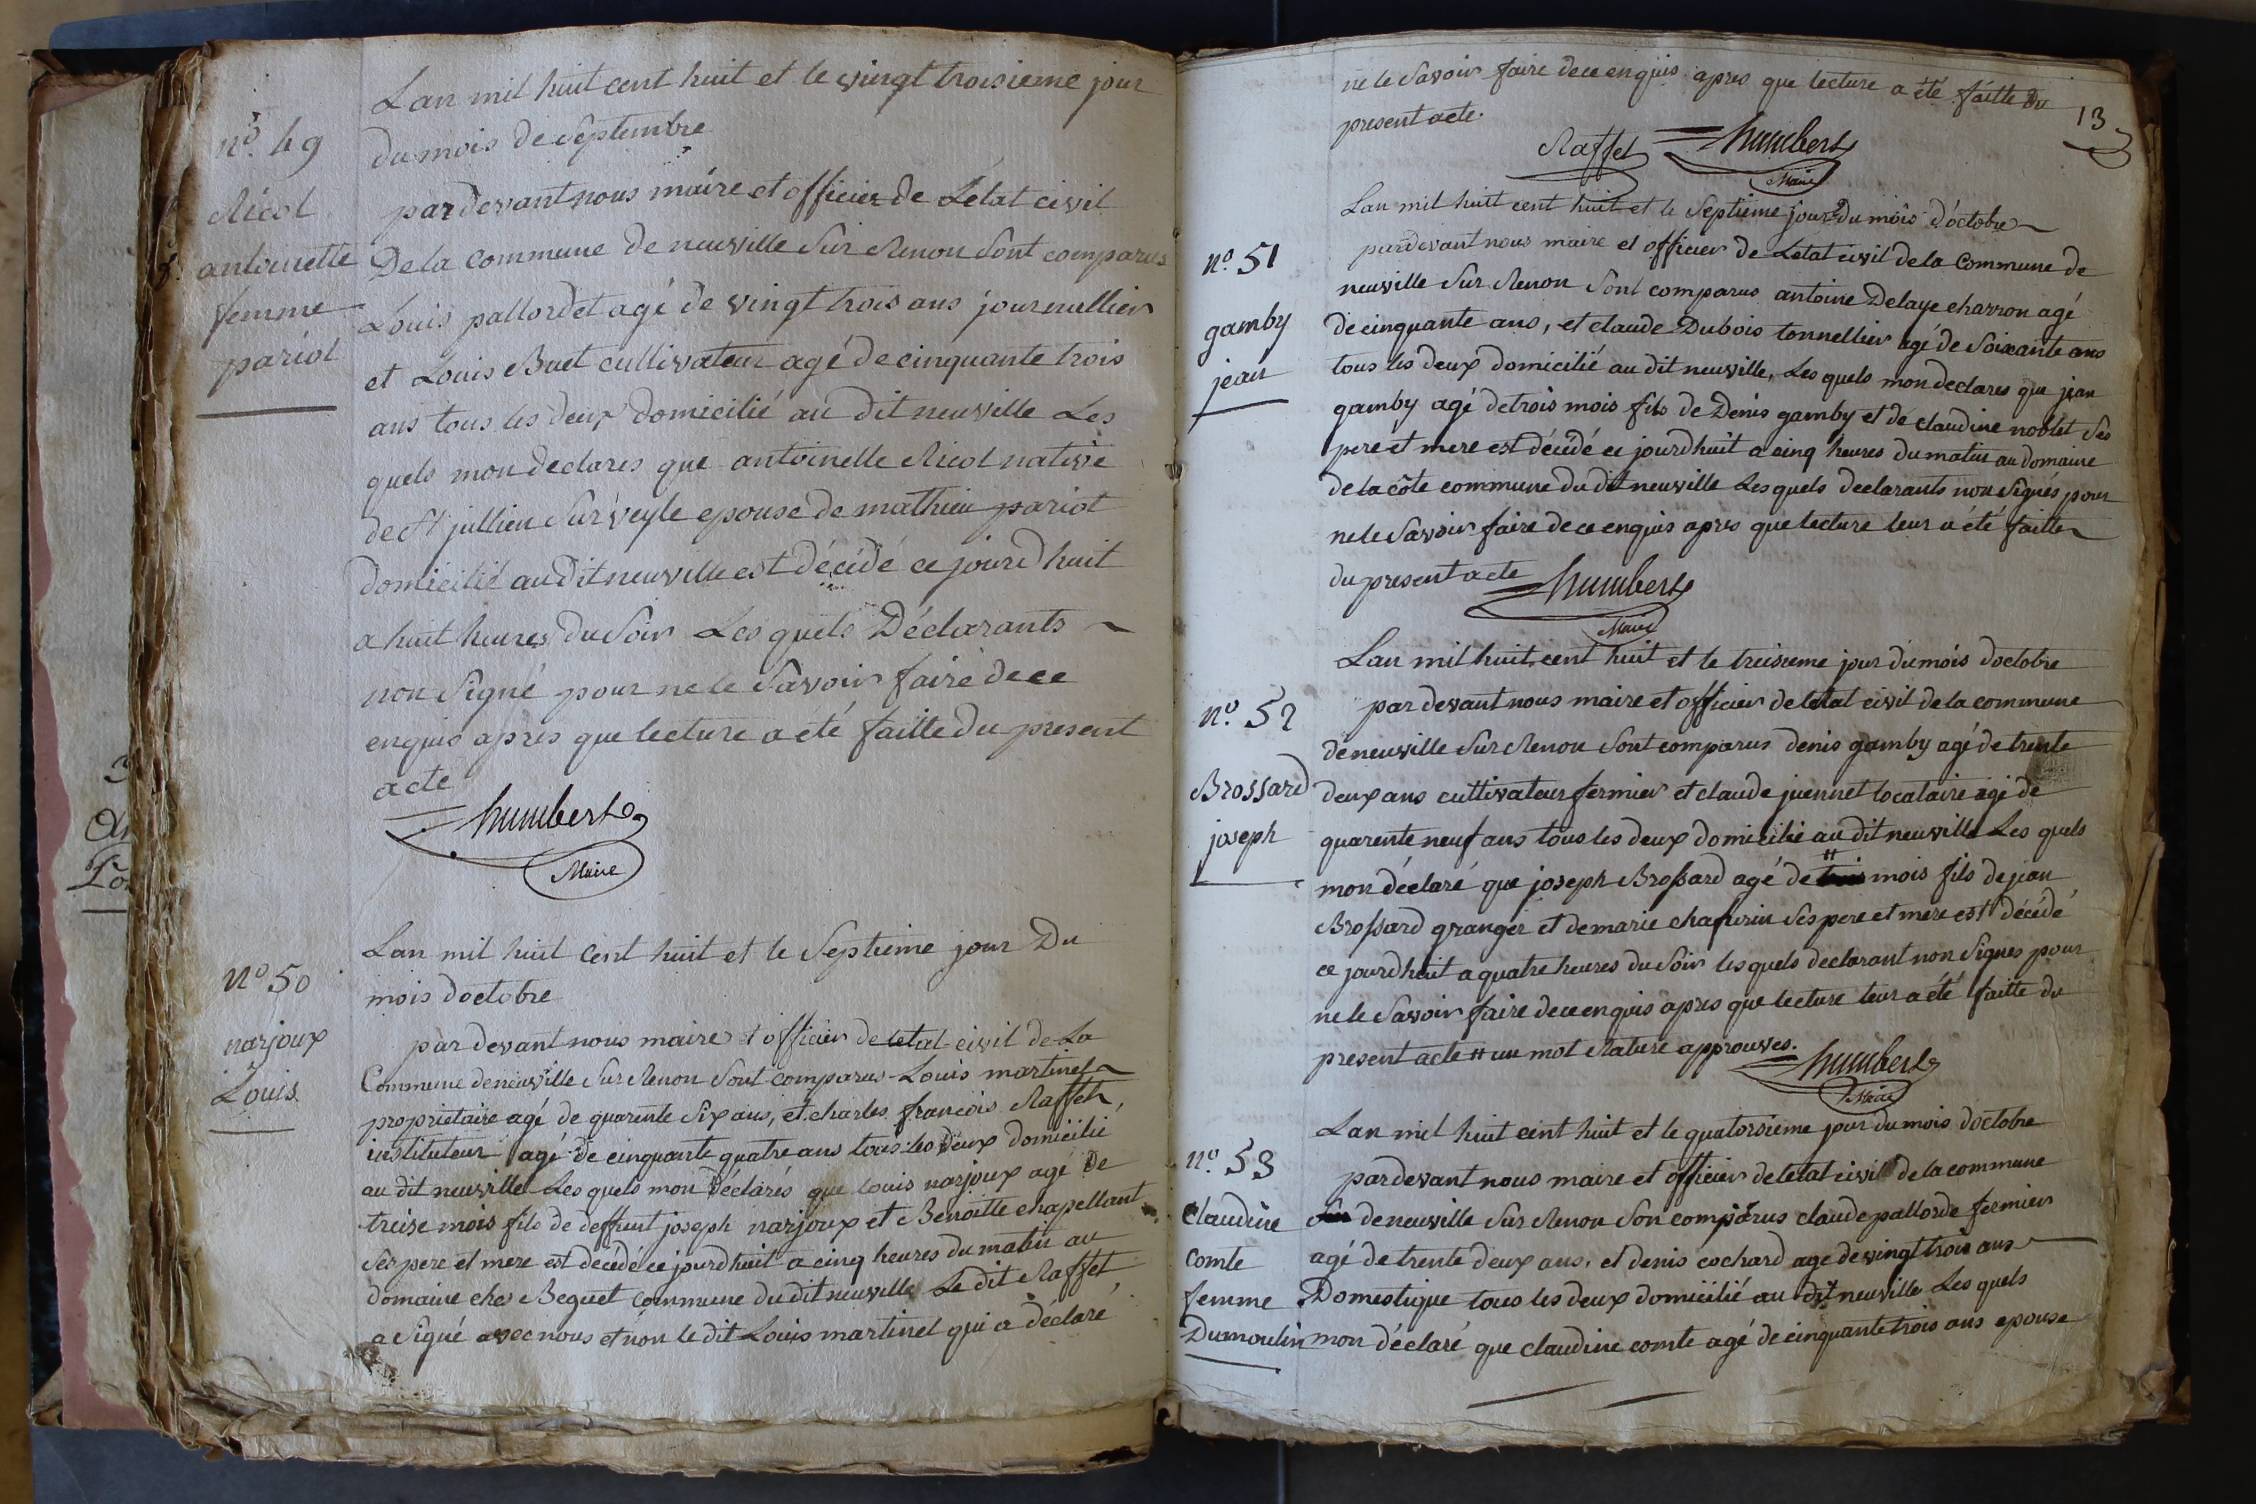 Lan mil huit cent huit et le vingt troisieme jour
du mois de Septembre
nº. 49
Ricol
antoinette
femme
pariot
pardevant nous maire et officier de Létat civil
De la Commune de neuville Sur Renon Sont comparus
Louis pallordet agé de vingt trois ans journallier
et Louis Buet cultivateur agé de cinquante trois
ans tous les deux domicilié au dit neuville Les
quels mon declares que antoinette Ricol native
de St jullien Sur veyle epouse de mathieu pariot
domicilié au dit neuville est décédé ce jourd huit
a huit heures du Soir Les quels Déclarants
non Signé pour ne le Savoir faire de ce
enquis apres que lecture a été faitte du present
acte
humbert
Maire
Lan mil huit cent huit et le Septieme jour Du
mois doctobre
nº 50
narjoux
Louis
par devant nous maire et officier de letat civil de La
Commune de neuville Sur Renon Sont comparus Louis martinet
proprietaire agé de quarente Six ans, et charles francois Raffet,
instituteur agé de cinquante quatre ans tous les deux domicilié
au dit neuville Les quels mon déclarés que louis narjoux agé de
treise mois fils de deffunt joseph narjoux et Benoitte chapellant
Ses pere et mere est décédé ce jourdhuit a cinq heures du matin au
domaine ches Beguet commune du dit neuville Le dit Raffet
a Signé avec nous et non le dit Louis martinet qui a déclaré
ne le Savoir faire de ce enquis apres que lecture a été faitte du
present acte.
13
Raffet humbert
Maire
Lan mil huit cent huit et le Septieme jour du mois d'octobre
nº. 51
gamby
jean
pardevant nous maire et officier de Letat civil de la Commune de
neuville Sur Renon Sont comparus antoine Delaye charron agé
de cinquante ans, et claude Dubois tonnellier agé de Soixante ans
tous les deux domicilié au dit neuville, Les quels mon declares que jean
gamby agé de trois mois fils de Denis gamby et de claudine noblet Ses
pere et mere est décédé ce jourdhuit a cinq heures du matin au domaine
de la côte commune du dit neuville Les quels declarants non Signés pour
ne le Savoir faire de ce enquis apres que lecture leur a été faitte
du present acte humbert
Maire
Lan mil huit cent huit et le treisieme jour du mois doctobre
nº. 52
Brossard
joseph
par devant nous maire et officier de letat civil de la commune
de neuville Sur Renon Sont comparus denis gamby agé de trente
deux ans cultivateur fermier et claude juennet locataire agé de
quarente neuf ans tous les deux domicilié au dit neuville Les quels
mon déclaré que joseph Brossard agé de # mois fils de jean
Brossard granger et de marie Ses pere et mere est décédé
ce jourdhuit a quatre heures du Soir les quels declarant non Signes pour
ne le Savoir faire de ce enquis apres que lecture leur a été faitte du
present acte # un mot Rature approuves. humbert
Maire
Lan mil huit cent huit et le quatorsieme jour du mois doctobre
nº. 53
Claudine
comte
femme
Dumoulin
pardevant nous maire et officier de letat civil de la commune
de neuville Sur Renon Son comparus claude pallorde fermier
agé de trente deux ans, et denis cochard agé de vingt trois ans
Domestique tous les deux domicilié au dit neuville Les quels
mon déclaré que claudine comte agé de cinquante trois ans epouse